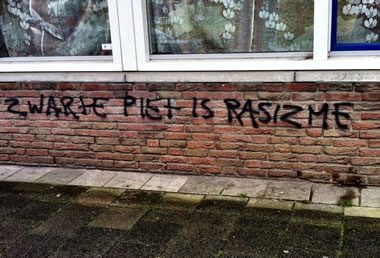 ZWARTE PIET IS RASIZME